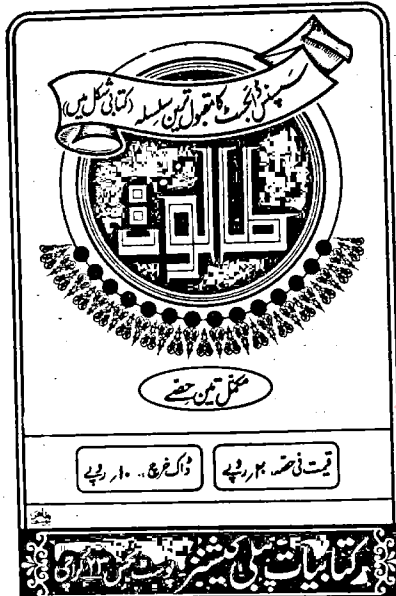 سسپنس ڈائجسٹ کا مقبول ترین سلسلہ (کتابی شکل میں)
طالوت
مکمل تین حصے
قیمت فی حصہ ۲۰ روپے
ڈاک خرچ ۱۰ روپے
کتابیات پبلی کیشنز پوسٹ بکس ۲۳ کراچی